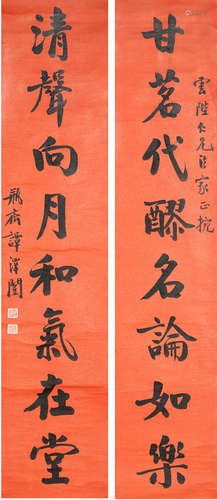 雲陛仁兄法家正捥
甘茗代醪名論如樂
清聲向月和氣在堂
瓶齋譚澤闓